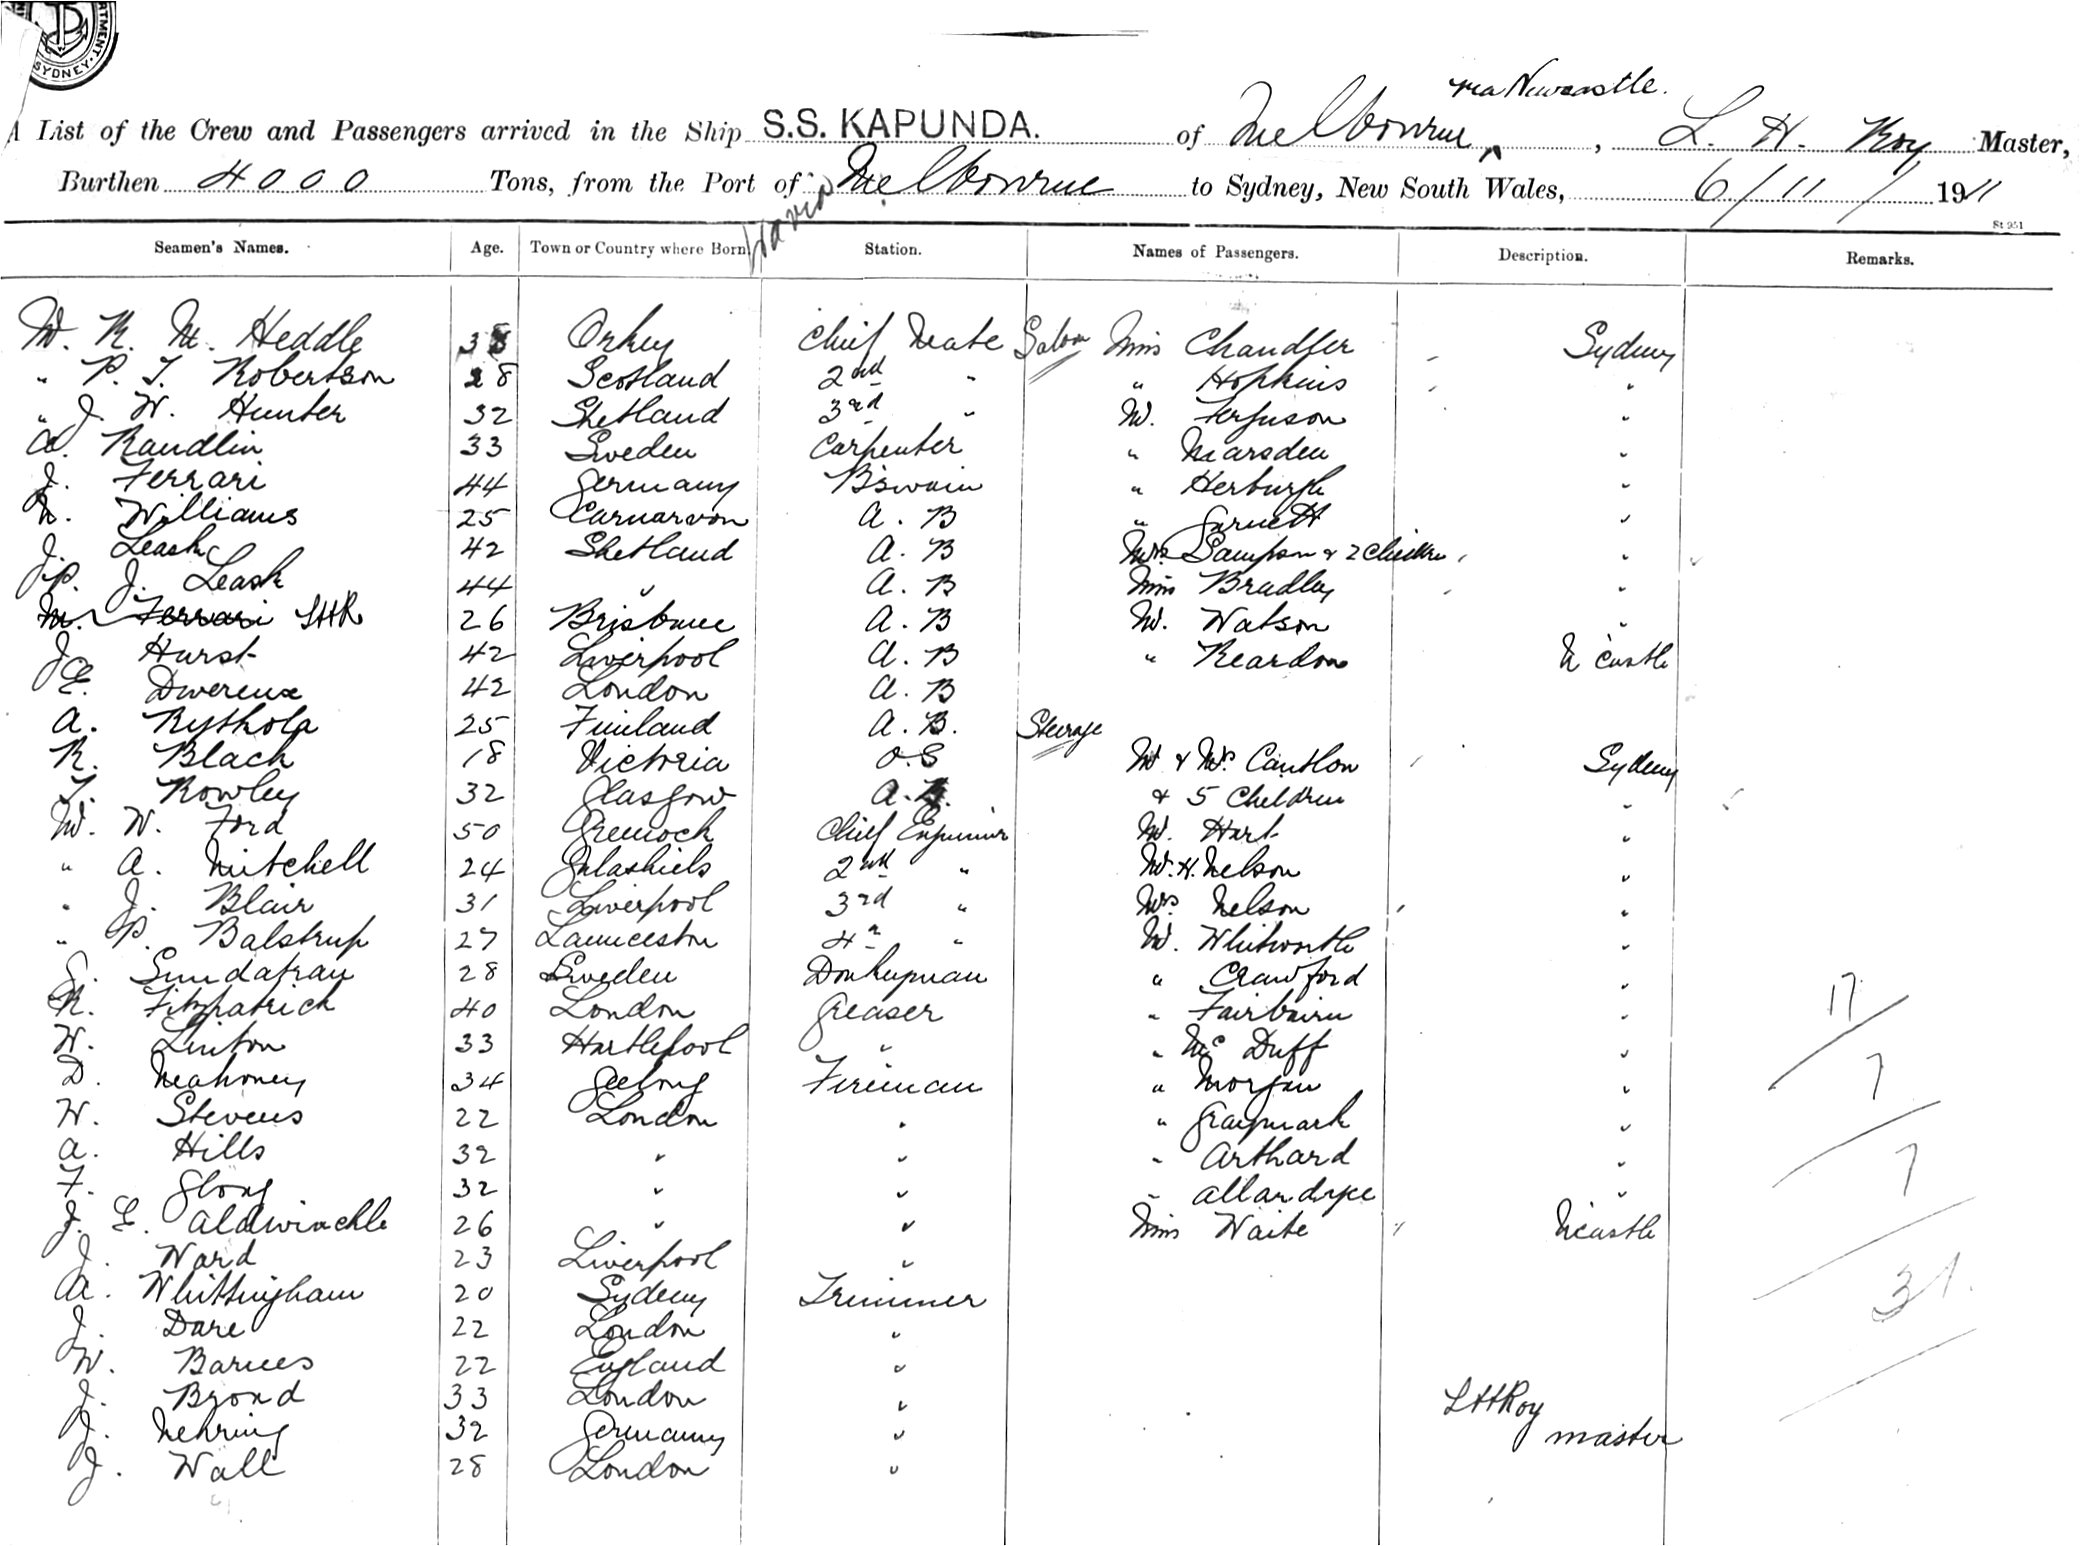 RTMENT.
SYDNEY.
via Newcastle.
A List of the Crew and Passengers arrived in the Ship S.S. KAPUNDA. of Melbourne, L. H. Roy Master,
Burthen 4000 Tons, from the Port of Melbourne to Sydney, New South Wales, 6/11/1911
St 951
Seamen's Names. Age. Town or Country where Born Station. Names of Passengers. Description. Remarks.
M. R. M. Heddle 38 Orkey Chief Mate Saloon Miss Chandler Sydney
" P. T. Robertson 28 Scotland 2nd " " Hopkins "
" J. W. Hunter 32 Shetland 3rd " M. Ferguson "
A. Randlin 33 Sweden Carpenter " Marsden "
J. Ferrari 44 Germany B'swain " Herburgh "
N. Williams 25 Carnarvon A. B " Garnett "
J. Leask 42 Shetland A. B Mrs Sampson & 2 Children "
J. P. J. Leask 44 " A. B Miss Bradley "
M. Ferrari LHR 26 Brisbane A. B M. Watson "
J. Hurst 42 Liverpool A. B " Reardon N'castle
E. Devereux 42 London A. B
A. Rythola 25 Finland A. B. Steerage
R. Black 18 Victoria O.S M & Mrs Cantlon Sydney
T. Rowley 32 Glasgow A.B. & 5 Children "
M. W. Ford 50 Greenock Chief Engineer M. Hart "
" A. Mitchell 24 Galashiels 2nd " M. H. Nelson "
" J. Blair 31 Liverpool 3rd " Mrs Nelson "
" P. Balstrup 27 Launceston 4th " M. Whitworth "
G. Sundafran 28 Sweden Donkeyman " Crawford "
R. Fitzpatrick 40 London Greaser " Fairbairn " 17
W. Linton 33 Hartlepool " " McDuff "
D. Mahoney 34 Geelong Fireman " Morgan " 7
W. Stevens 22 London " " Graymark "
A. Hills 32 " " " Arthard " 7
F. Glong 32 " " " Allardyce "
J. E. Aldwinckle 26 " " Miss Waite N'castle
J. Ward 23 Liverpool "
A. Whittingham 20 Sydney Trimmer 31.
J. Dare 22 London "
W. Barnes 22 England "
J. Brond 33 London " LHRoy
J. Nehring 32 Germany " master
J. Wall 28 London "